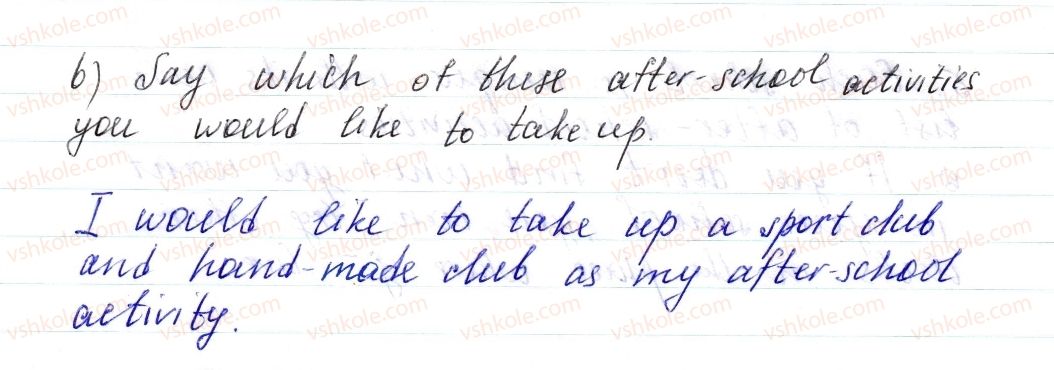 b) Say which of these after-school activities
you would like to take up.
I would like to take up a sport club
and hand-made club as my after-school
activity.